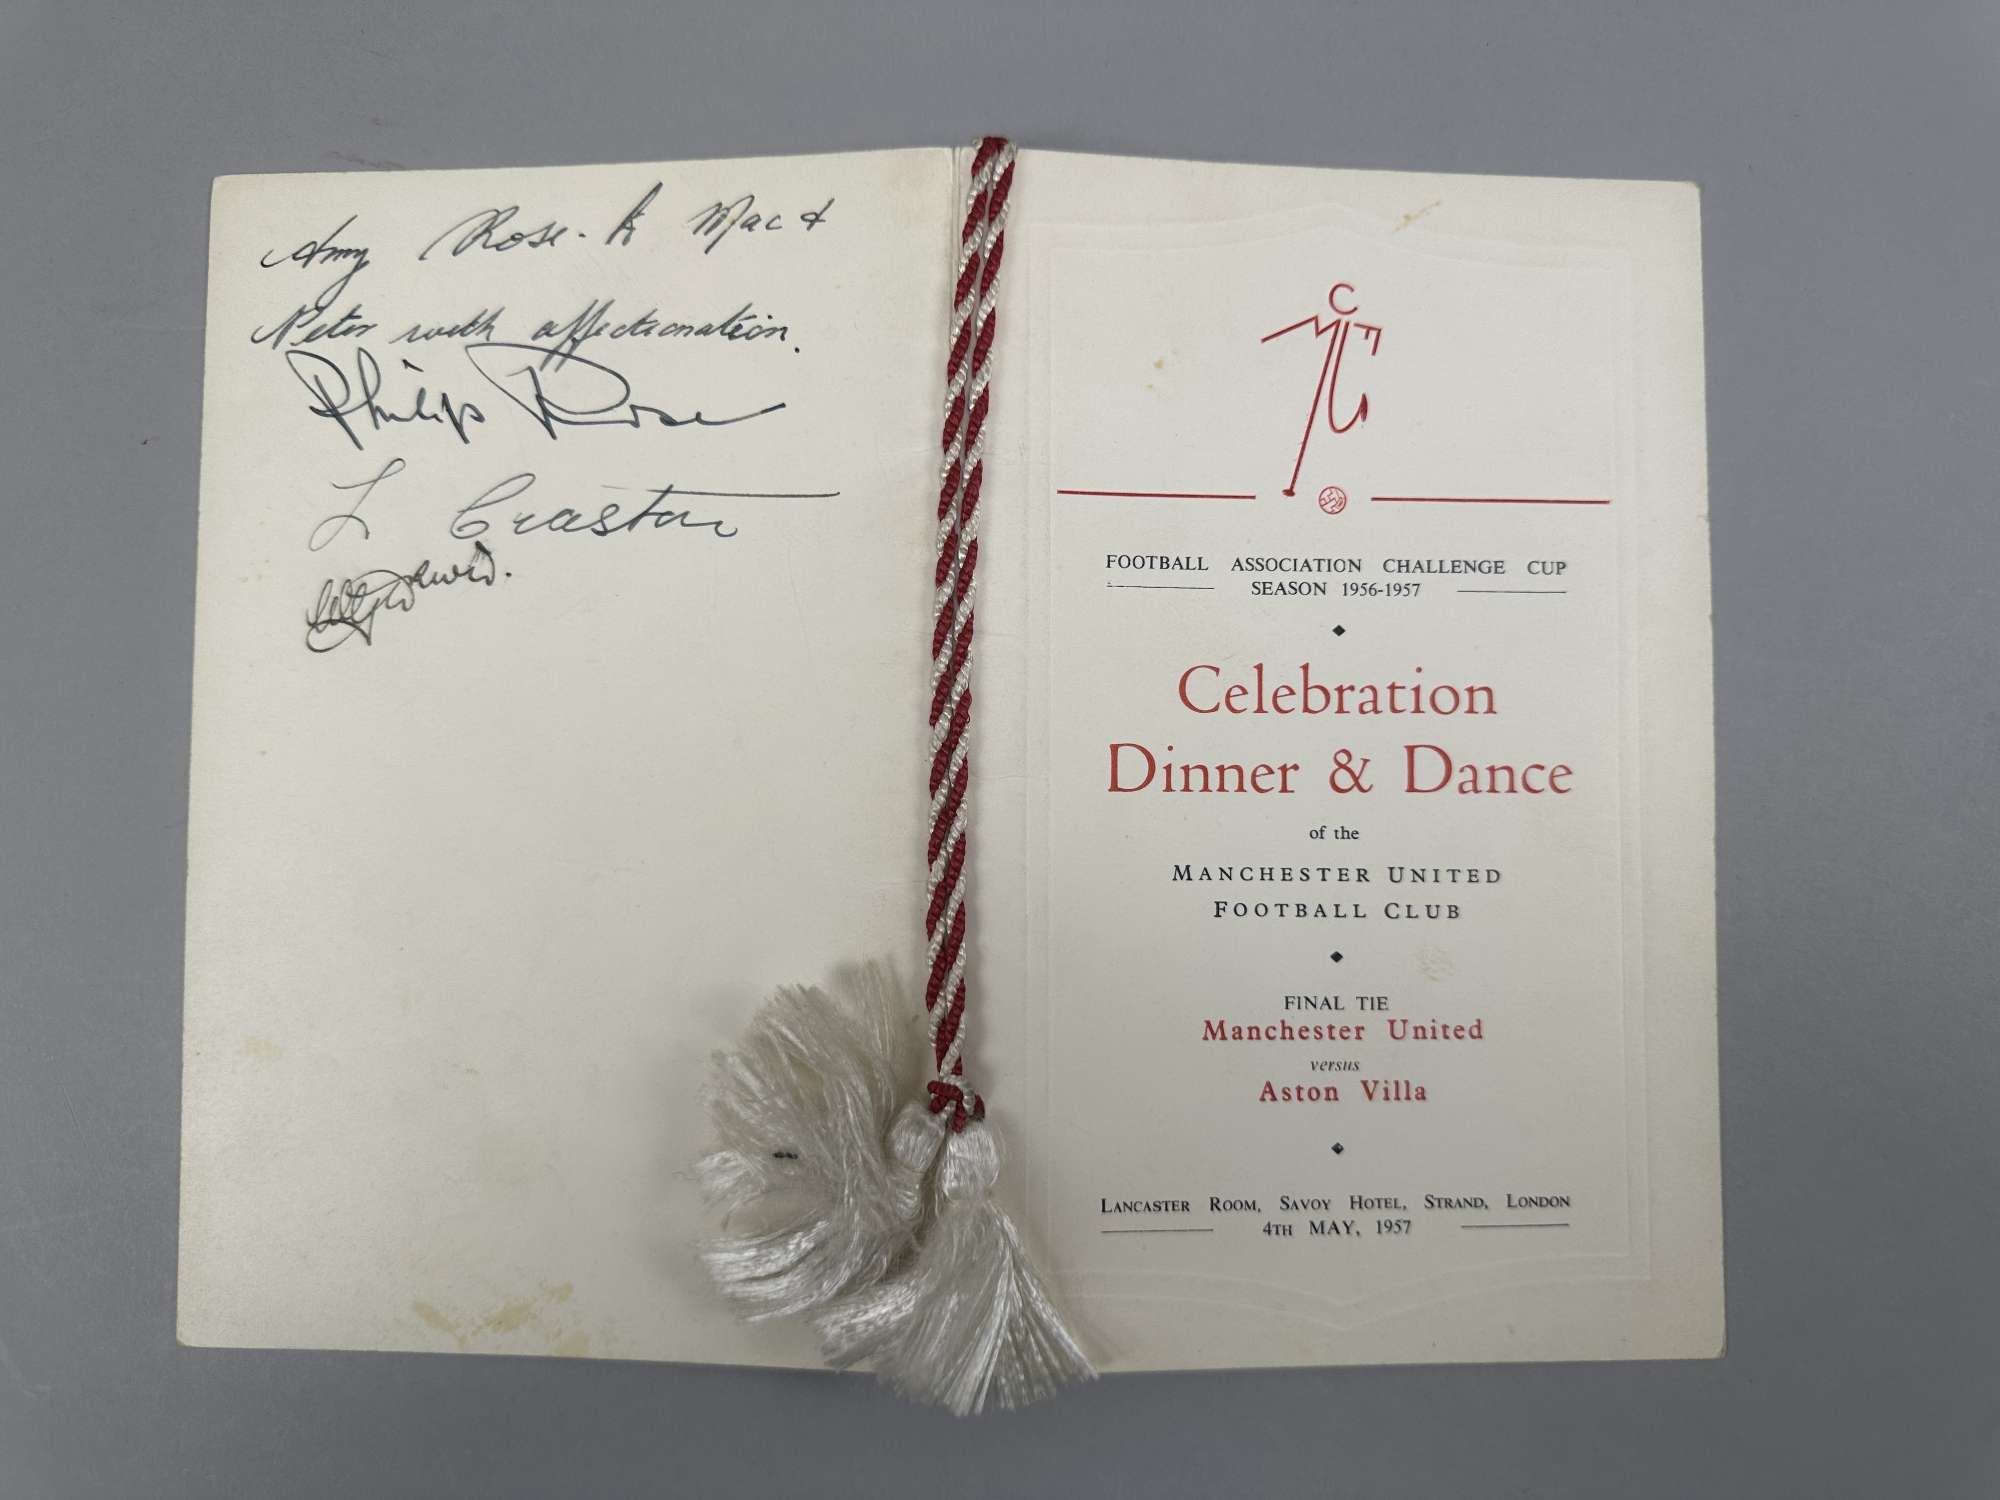 Amy Rose. to Mac &
Peter with affectionation.
Philip Rose
L Craston
MUFC
FOOTBALL ASSOCIATION CHALLENGE CUP
SEASON 1956-1957
Celebration
Dinner & Dance
of the
MANCHESTER UNITED
FOOTBALL CLUB
FINAL TIE
Manchester United
versus
Aston Villa
LANCASTER ROOM, SAVOY HOTEL, STRAND, LONDON
4TH MAY, 1957